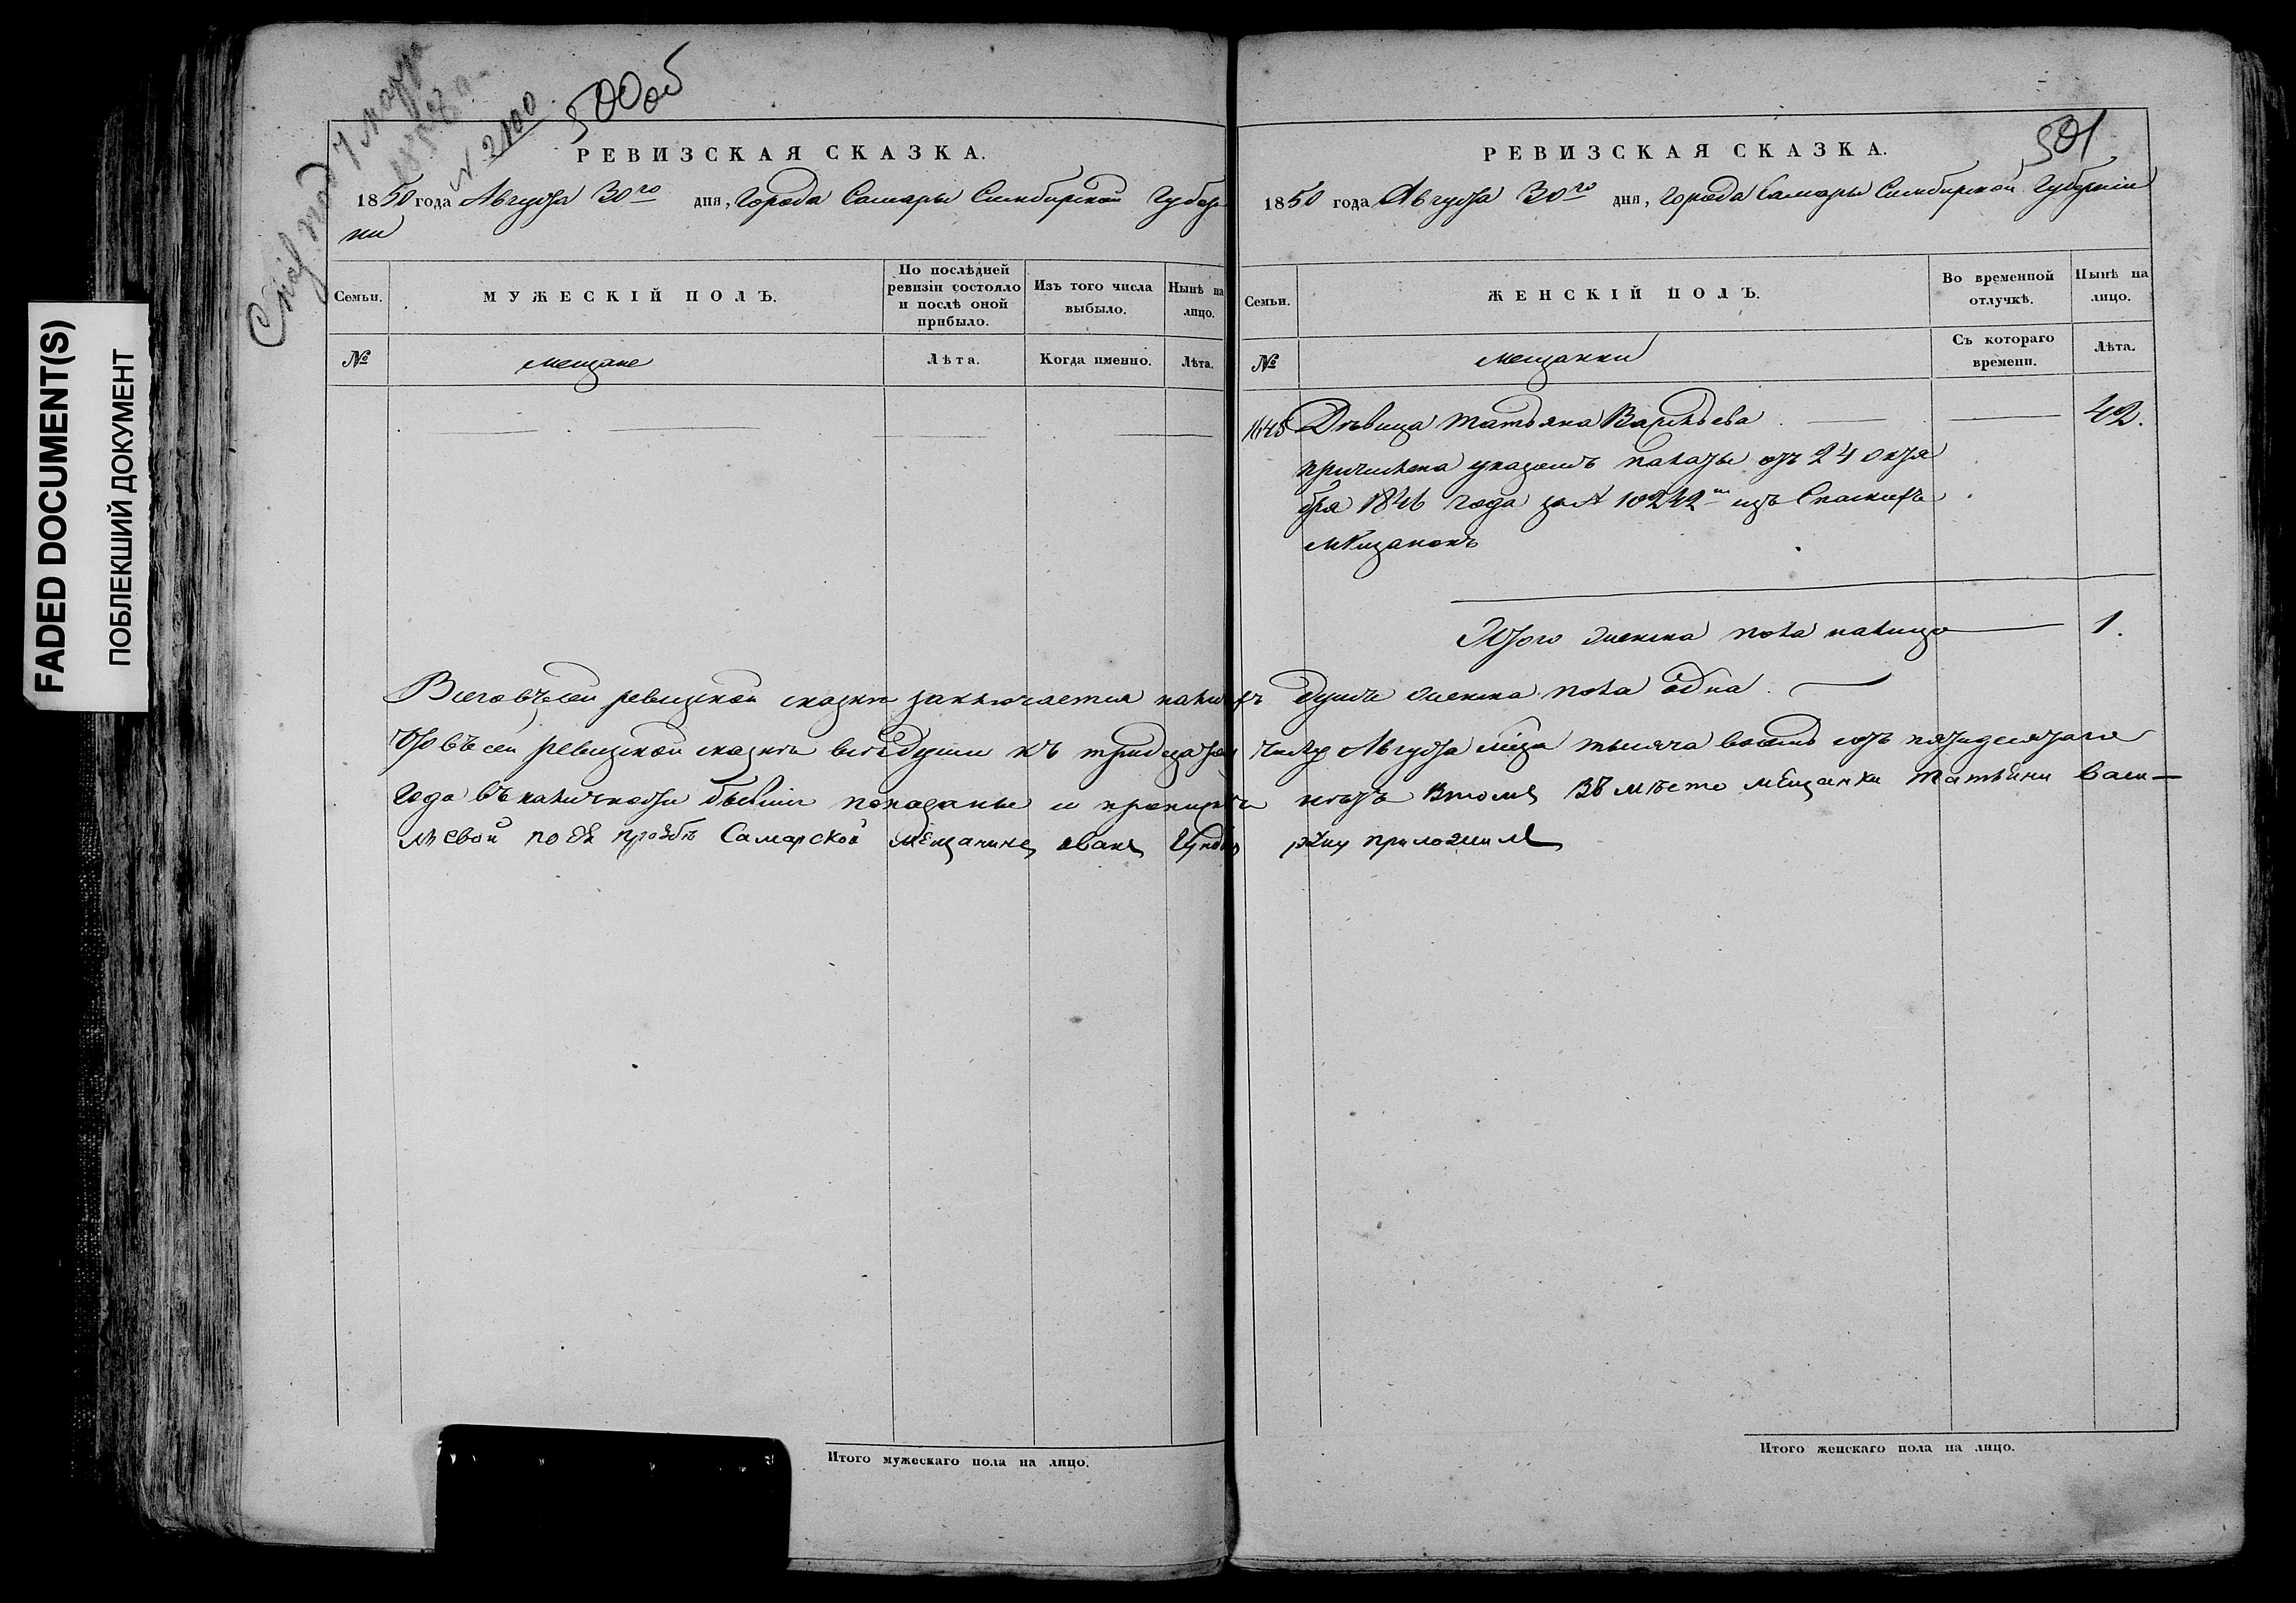 FADED DOCUMENT(S)
ПОБЛЕКШИЙ ДОКУМЕНТ
7 мар
№ 2100
500 об
РЕВИЗСКАЯ СКАЗКА.
1850 года Августа 30го дня, Города Самары Симбирской Губер
нии
Семьи.
МУЖЕСКІЙ ПОЛЪ.
По послѣдней ревизіи состояло и послѣ оной прибыло.
Изъ того числа выбыло.
Нынѣ на лицо.
№
мещане
Лѣта.
Когда именно.
Лѣта.
501
РЕВИЗСКАЯ СКАЗКА.
1850 года Августа 30го дня, города Самары Симбирской Губерніи
Семьи.
ЖЕНСКІЙ ПОЛЪ.
Во временной отлучкѣ.
Нынѣ на лицо.
№
мещанки
Съ котораго времени.
Лѣта.
Дѣвица Татьяна Васильева 42.
причислена указомъ палаты отъ 24 октя
бря 1846 года за № 10242 изъ Спаскихъ
мѣщанокъ
Итого женска пола налицо 1.
Всего въ сей ревизской сказки заключается налицо душъ женска пола одна.
Что въ сей ревизской сказки всѣ души къ тридцатому числу Августа мѣца тысяча восемь сотъ пятидесятаго
года въ наличности бывшіе показаны и прописки нѣтъ втомъ въ мѣсто мещанки Татьяни Васи-
льевой по ея прозбѣ Самарской мещанинъ Иванъ руку приложилъ
Итого мужескаго пола на лицо.
Итого женскаго пола на лицо.